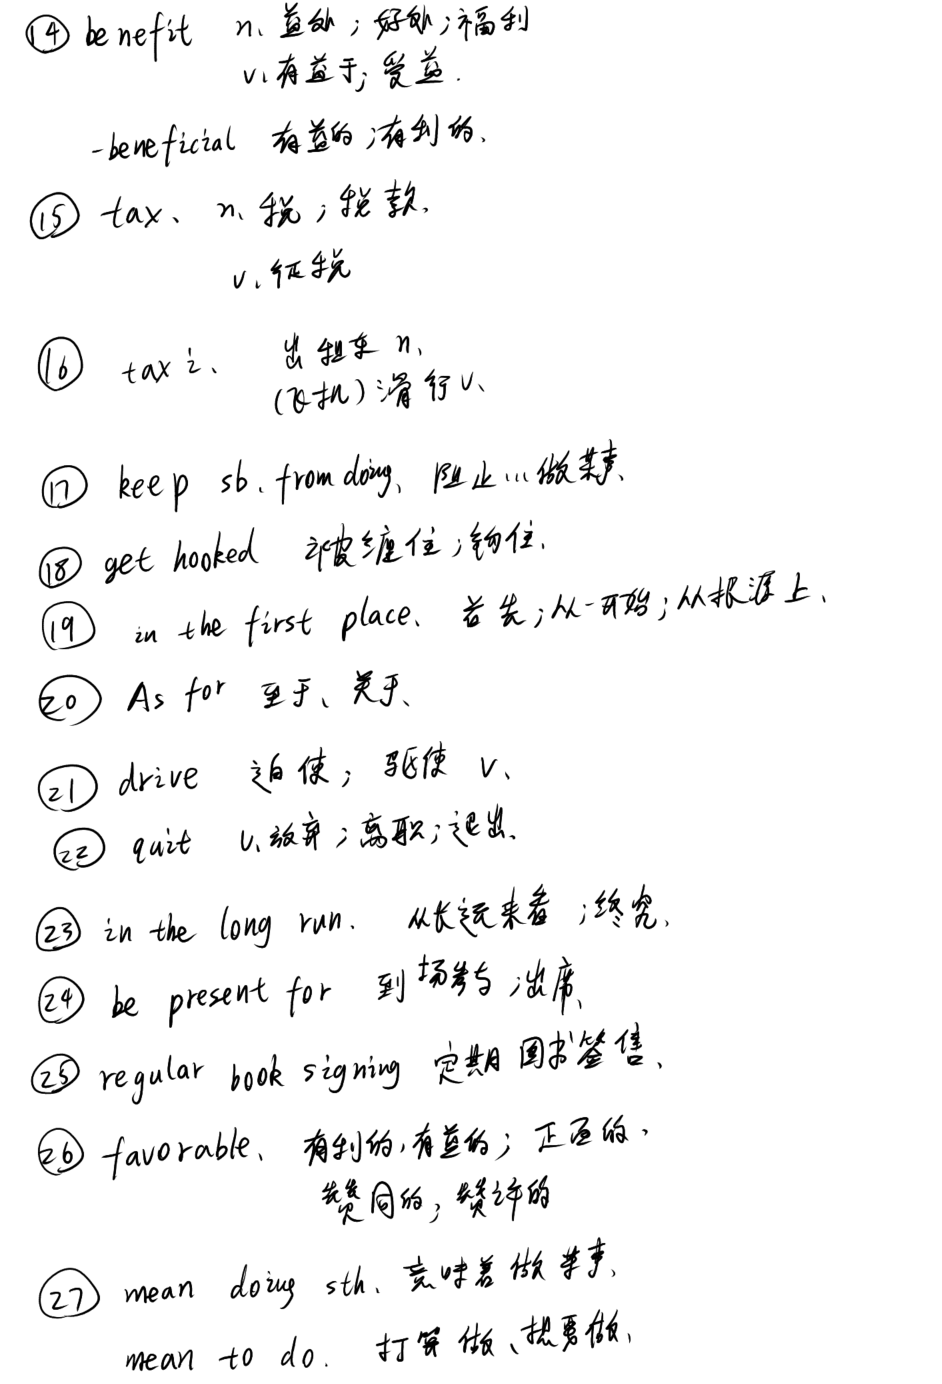 ⑭ benefit n、益处；好处；福利
v、有益于；受益.
-beneficial 有益的；有利的、
⑮ tax、n、税；税款、
v、征税
⑯ taxi、出租车 n、
(飞机)滑行 v、
⑰ keep sb、from doing、阻止...做某事、
⑱ get hooked 被缠住；钩住、
⑲ in the first place、首先；从一开始；从根源上、
⑳ As for 至于、关于、
㉑ drive 迫使；驱使 v、
㉒ quit v、放弃；离职；退出、
㉓ in the long run. 从长远来看；终究、
㉔ be present for 到场参与；出席、
㉕ regular book signing 定期图书签售、
㉖ favorable、有利的，有益的；正面的、
赞同的；赞许的
㉗ mean doing sth、意味着做某事、
mean to do. 打算做、想要做、